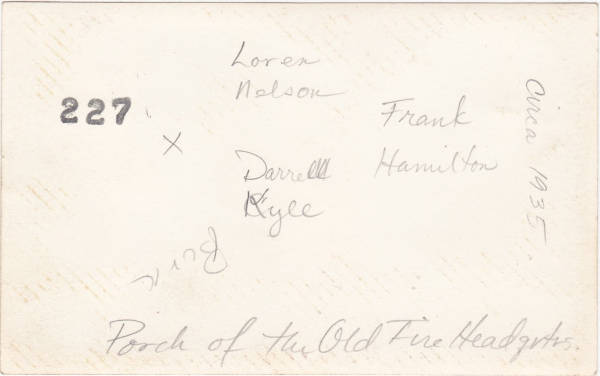 227
X
Loren
Nelson
Frank
Hamilton
Darrell
Kyle
Circa 1935
Porch of the Old Fire Headqrtrs.